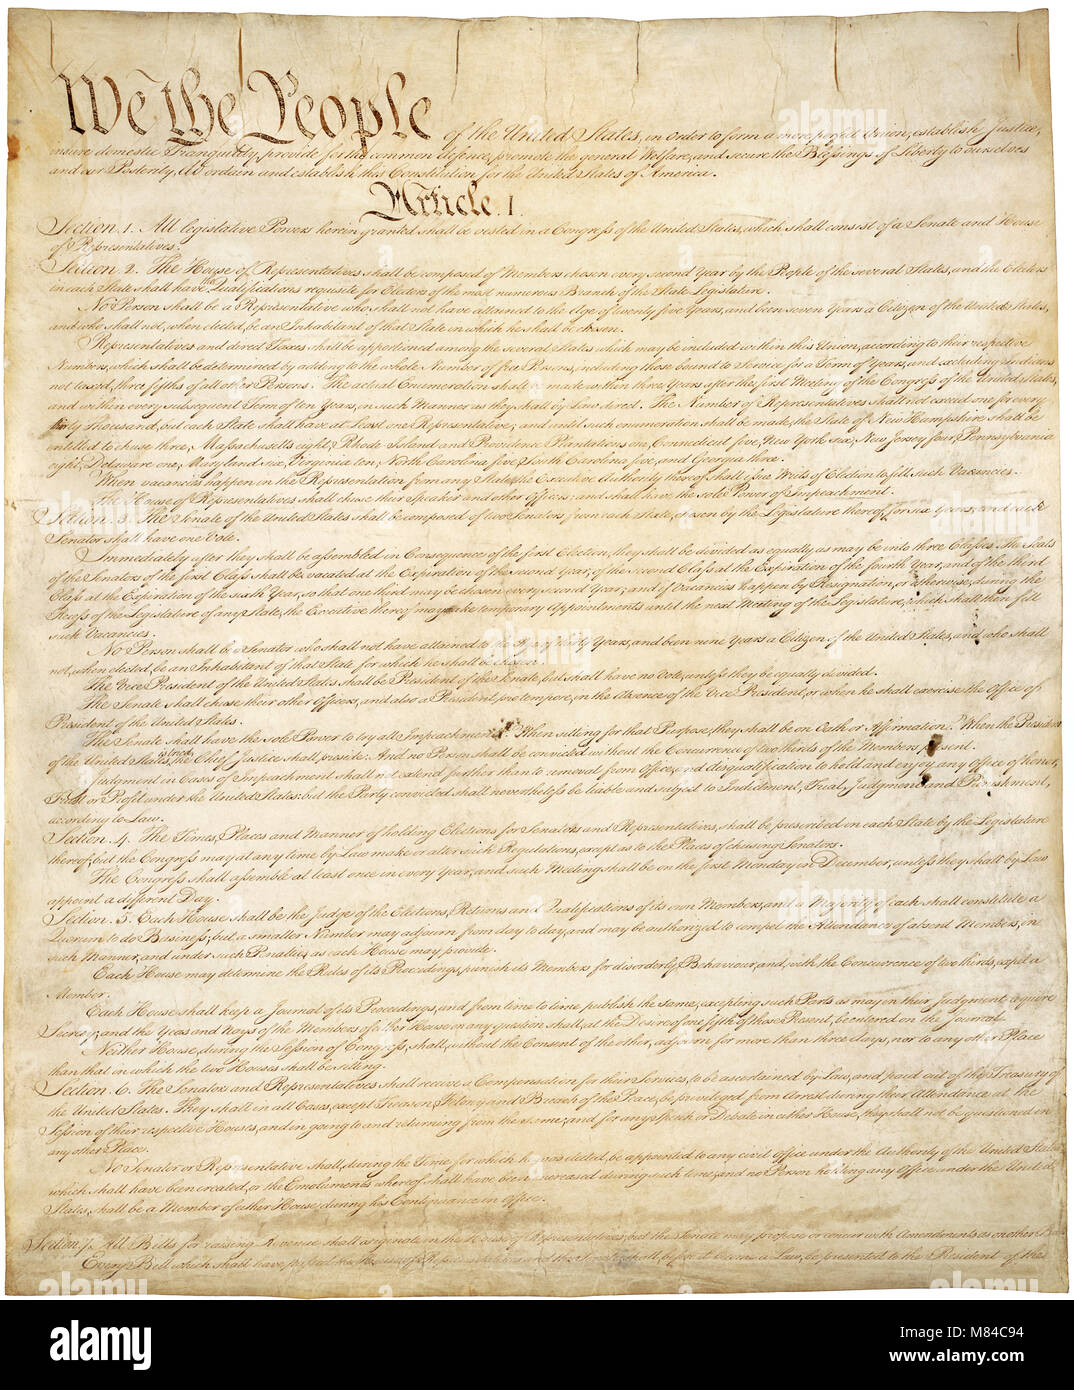 We the People of the United States, in Order to form a more perfect Union, establish Justice,
insure domestic Tranquility, provide for the common defence, promote the general Welfare, and secure the Blessings of Liberty to ourselves
and our Posterity, do ordain and establish this Constitution for the United States of America.
Article. I.
Section. 1. All legislative Powers herein granted shall be vested in a Congress of the United States, which shall consist of a Senate and House
of Representatives.
Section. 2. The House of Representatives shall be composed of Members chosen every second Year by the People of the several States, and the Electors
in each State shall have the Qualifications requisite for Electors of the most numerous Branch of the State Legislature.
No Person shall be a Representative who shall not have attained to the Age of twenty five Years, and been seven Years a Citizen of the United States,
and who shall not, when elected, be an Inhabitant of that State in which he shall be chosen.
Representatives and direct Taxes shall be apportioned among the several States which may be included within this Union, according to their respective
Numbers, which shall be determined by adding to the whole Number of free Persons, including those bound to Service for a Term of Years, and excluding Indians
not taxed, three fifths of all other Persons. The actual Enumeration shall be made within three Years after the first Meeting of the Congress of the United States,
and within every subsequent Term of ten Years, in such Manner as they shall by Law direct. The Number of Representatives shall not exceed one for every
thirty Thousand, but each State shall have at Least one Representative; and until such enumeration shall be made, the State of New Hampshire shall be
entitled to chuse three, Massachusetts eight, Rhode Island and Providence Plantations one, Connecticut five, New York six, New Jersey four, Pennsylvania
eight, Delaware one, Maryland six, Virginia ten, North Carolina five, South Carolina five, and Georgia three.
When vacancies happen in the Representation from any State, the Executive Authority thereof shall issue Writs of Election to fill such Vacancies.
The House of Representatives shall chuse their Speaker and other Officers; and shall have the sole Power of Impeachment.
Section. 3. The Senate of the United States shall be composed of two Senators from each State, chosen by the Legislature thereof, for six Years; and each
Senator shall have one Vote.
Immediately after they shall be assembled in Consequence of the first Election, they shall be divided as equally as may be into three Classes. The Seats
of the Senators of the first Class shall be vacated at the Expiration of the second Year, of the second Class at the Expiration of the fourth Year, and of the third
Class at the Expiration of the sixth Year, so that one third may be chosen every second Year; and if Vacancies happen by Resignation, or otherwise, during the
Recess of the Legislature of any State, the Executive thereof may make temporary Appointments until the next Meeting of the Legislature, which shall then fill
such Vacancies.
No Person shall be a Senator who shall not have attained to the Age of thirty Years, and been nine Years a Citizen of the United States, and who shall
not, when elected, be an Inhabitant of that State for which he shall be chosen.
The Vice President of the United States shall be President of the Senate, but shall have no Vote, unless they be equally divided.
The Senate shall chuse their other Officers, and also a President pro tempore, in the Absence of the Vice President, or when he shall exercise the Office of
President of the United States.
The Senate shall have the sole Power to try all Impeachments. When sitting for that Purpose, they shall be on Oath or Affirmation. When the President
of the United States is tried, the Chief Justice shall preside: And no Person shall be convicted without the Concurrence of two thirds of the Members present.
Judgment in Cases of Impeachment shall not extend further than to removal from Office, and disqualification to hold and enjoy any Office of honor,
Trust or Profit under the United States: but the Party convicted shall nevertheless be liable and subject to Indictment, Trial, Judgment and Punishment,
according to Law.
Section. 4. The Times, Places and Manner of holding Elections for Senators and Representatives, shall be prescribed in each State by the Legislature
thereof; but the Congress may at any time by Law make or alter such Regulations, except as to the Places of chusing Senators.
The Congress shall assemble at least once in every Year, and such Meeting shall be on the first Monday in December, unless they shall by Law
appoint a different Day.
Section. 5. Each House shall be the Judge of the Elections, Returns and Qualifications of its own Members, and a Majority of each shall constitute a
Quorum to do Business; but a smaller Number may adjourn from day to day, and may be authorized to compel the Attendance of absent Members, in
such Manner, and under such Penalties as each House may provide.
Each House may determine the Rules of its Proceedings, punish its Members for disorderly Behaviour, and, with the Concurrence of two thirds, expel a
Member.
Each House shall keep a Journal of its Proceedings, and from time to time publish the same, excepting such Parts as may in their Judgment require
Secrecy; and the Yeas and Nays of the Members of either House on any question shall, at the Desire of one fifth of those Present, be entered on the Journal.
Neither House, during the Session of Congress, shall, without the Consent of the other, adjourn for more than three days, nor to any other Place
than that in which the two Houses shall be sitting.
Section. 6. The Senators and Representatives shall receive a Compensation for their Services, to be ascertained by Law, and paid out of the Treasury of
the United States. They shall in all Cases, except Treason, Felony and Breach of the Peace, be privileged from Arrest during their Attendance at the
Session of their respective Houses, and in going to and returning from the same; and for any Speech or Debate in either House, they shall not be questioned in
any other Place.
No Senator or Representative shall, during the Time for which he was elected, be appointed to any civil Office under the Authority of the United States,
which shall have been created, or the Emoluments whereof shall have been encreased during such time; and no Person holding any Office under the United
States, shall be a Member of either House during his Continuance in Office.
Section. 7. All Bills for raising Revenue shall originate in the House of Representatives; but the Senate may propose or concur with Amendments as on other Bills.
Every Bill which shall have passed the House of Representatives and the Senate, shall, before it become a Law, be presented to the President of the
alamy
Image ID: M84C94
www.alamy.com